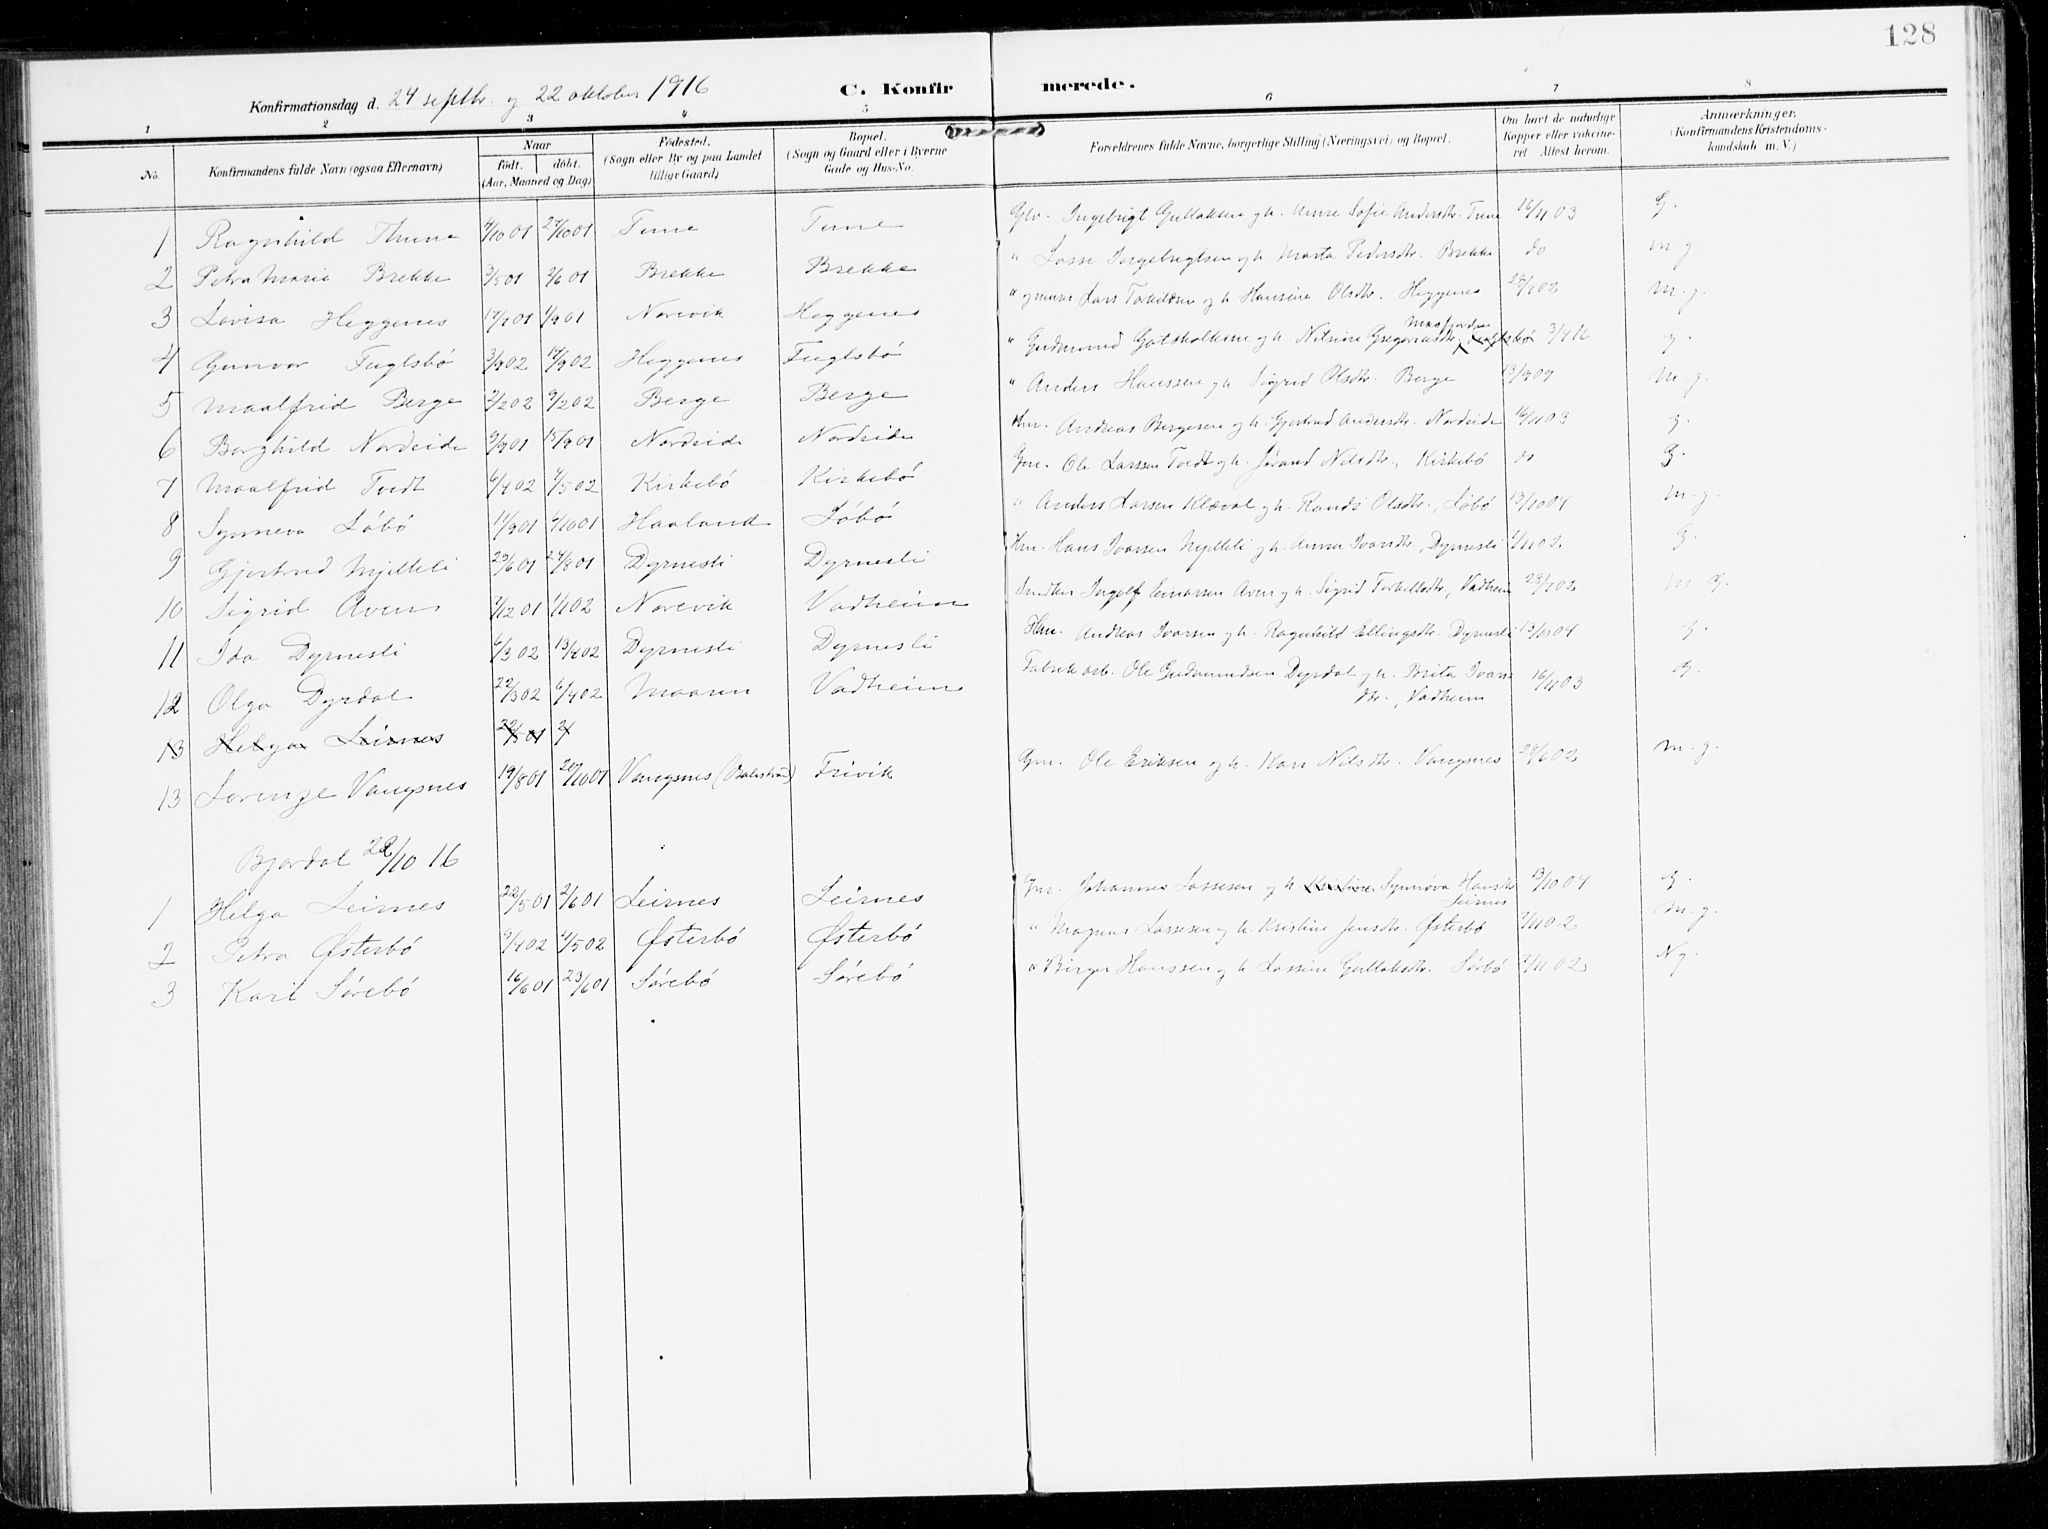 128
Konfirmationsdag d. 24 septbr. g 22 oktober 1916 C. Konfirmerede.
1 2 3 4 5 6 7 8
No. Konfirmandens fulde Navn (ogsaa Efternavn) Naar født. døbt. (Aar, Maaned og Dag) Fødested. (Sogn eller By og paa Landet tillige Gaard) Bopæl. (Sogn og Gaard eller i Byerne Gade og Hus-No. Forældrenes fulde Navne, borgerlige Stilling (Næringsvei) og Bopæl. Om havt de naturlige Kopper eller vakcineret Attest herom. Anmærkninger. (Konfirmandens Kristendomskundskab m. V.)
1 Ragnhild Thune 4/10 01 27/10 01 Tune Tune Gbr. Ingebrigt Gullaksen g h. Anne Sofie Andersdtr. Tune 16/11 03 G.
2 Petra Marie Brekke 3/5 01 2/6 01 Brekke Brekke " Lasse Ingebrigtsen g h. Marta Pedersdtr. Brekke do m g.
3 Lovisa Heggenes 17/7 01 1/9 01 Norevik Heggenes " Lars Torkildsen g h Hansine Olsdtr. Heggenes 28/7 02 m. g.
4 Gunvor Fuglsbö 3/9 02 14/9 02 Heggenes Fuglsbö " Gudmund Gotskalksen g h. Nilsine Gregoriusdtr. 3/4 16 g.
5 Maalfrid Berge 2/2 02 9/2 02 Berge Berge " Anders Hanssen g h. Sigrid Olsdtr. Berge 13/9 09 m. g.
6 Borghild Nordeide 9/9 01 15/9 01 Nordeide Nordeide Hm. Andreas Bergesen g h. Gjertrud Andersdtr. Nordeide 16/11 03 g.
7 Maalfrid Tvedt 6/4 02 4/5 02 Kirkebö Kirkebö Gm. Ole Larssen Tvedt g h. Jorand Nilsdtr., Kirkebö do g.
8 Synneva Löbö 11/9 01 6/10 01 Haaland Löbö " Anders Larsen Klæval g h. Randi Olsdtr., Löbö 13/10 04 m. g.
9 Gjertrud Mjelleli 29/6 01 24/8 01 Dyrnesli Dyrnesli Hm. Hans Ivarsen Mjelleli g h. Anna Ivarsdtr., Dyrnesli 7/11 02 G.
10 Sigrid Aven 7/12 01 1/1 02 Norevik Vadheim Ingolf Einarsen Aven g h. Sigrid Torkildsdtr., Vadheim 28/7 02 m g.
11 Ida Dyrnesli 6/3 02 13/4 02 Dyrnesli Dyrnesli Hm. Andreas Ivarsen g h. Ragnhild Ellingsdtr. Dyrnesli 13/10 04 g.
12 Olga Dyrdal 22/3 02 6/4 02 Maaren Vadheim Fabrik arb. Ole Gudmundsen Dyrdal g h. Brita Ivars 16/11 03 g.
dtr., Vadheim
13 Helga Leirnes 22/5 01 2/
13 Lorenze Vangsnes 19/8 01 20/10 01 Vangsnes (Balestrand) Frivik Gm. Ole Eriksen g h. Kari Nilsdtr. Vangsnes 28/6 02 m. g.
Bjordal 22/10 16
1 Helga Leirnes 22/5 01 2/6 01 Leirnes Leirnes Gm. Johannes Lassesen g h Kristine Synnöva Hansdtr 13/10 04 g.
Leirnes
2 Petra Østerbö 9/4 02 4/5 02 Østerbö Østerbö " Magnus Lassesen g h. Kristine Jensdtr. Østerbö 7/11 02 m. g.
3 Kari Sörebö 16/6 01 23/6 01 Sörebö Sörebö " Birger Hanssen g h Lassine Gullaksdtr. Sörbö 7/11 02 N g.